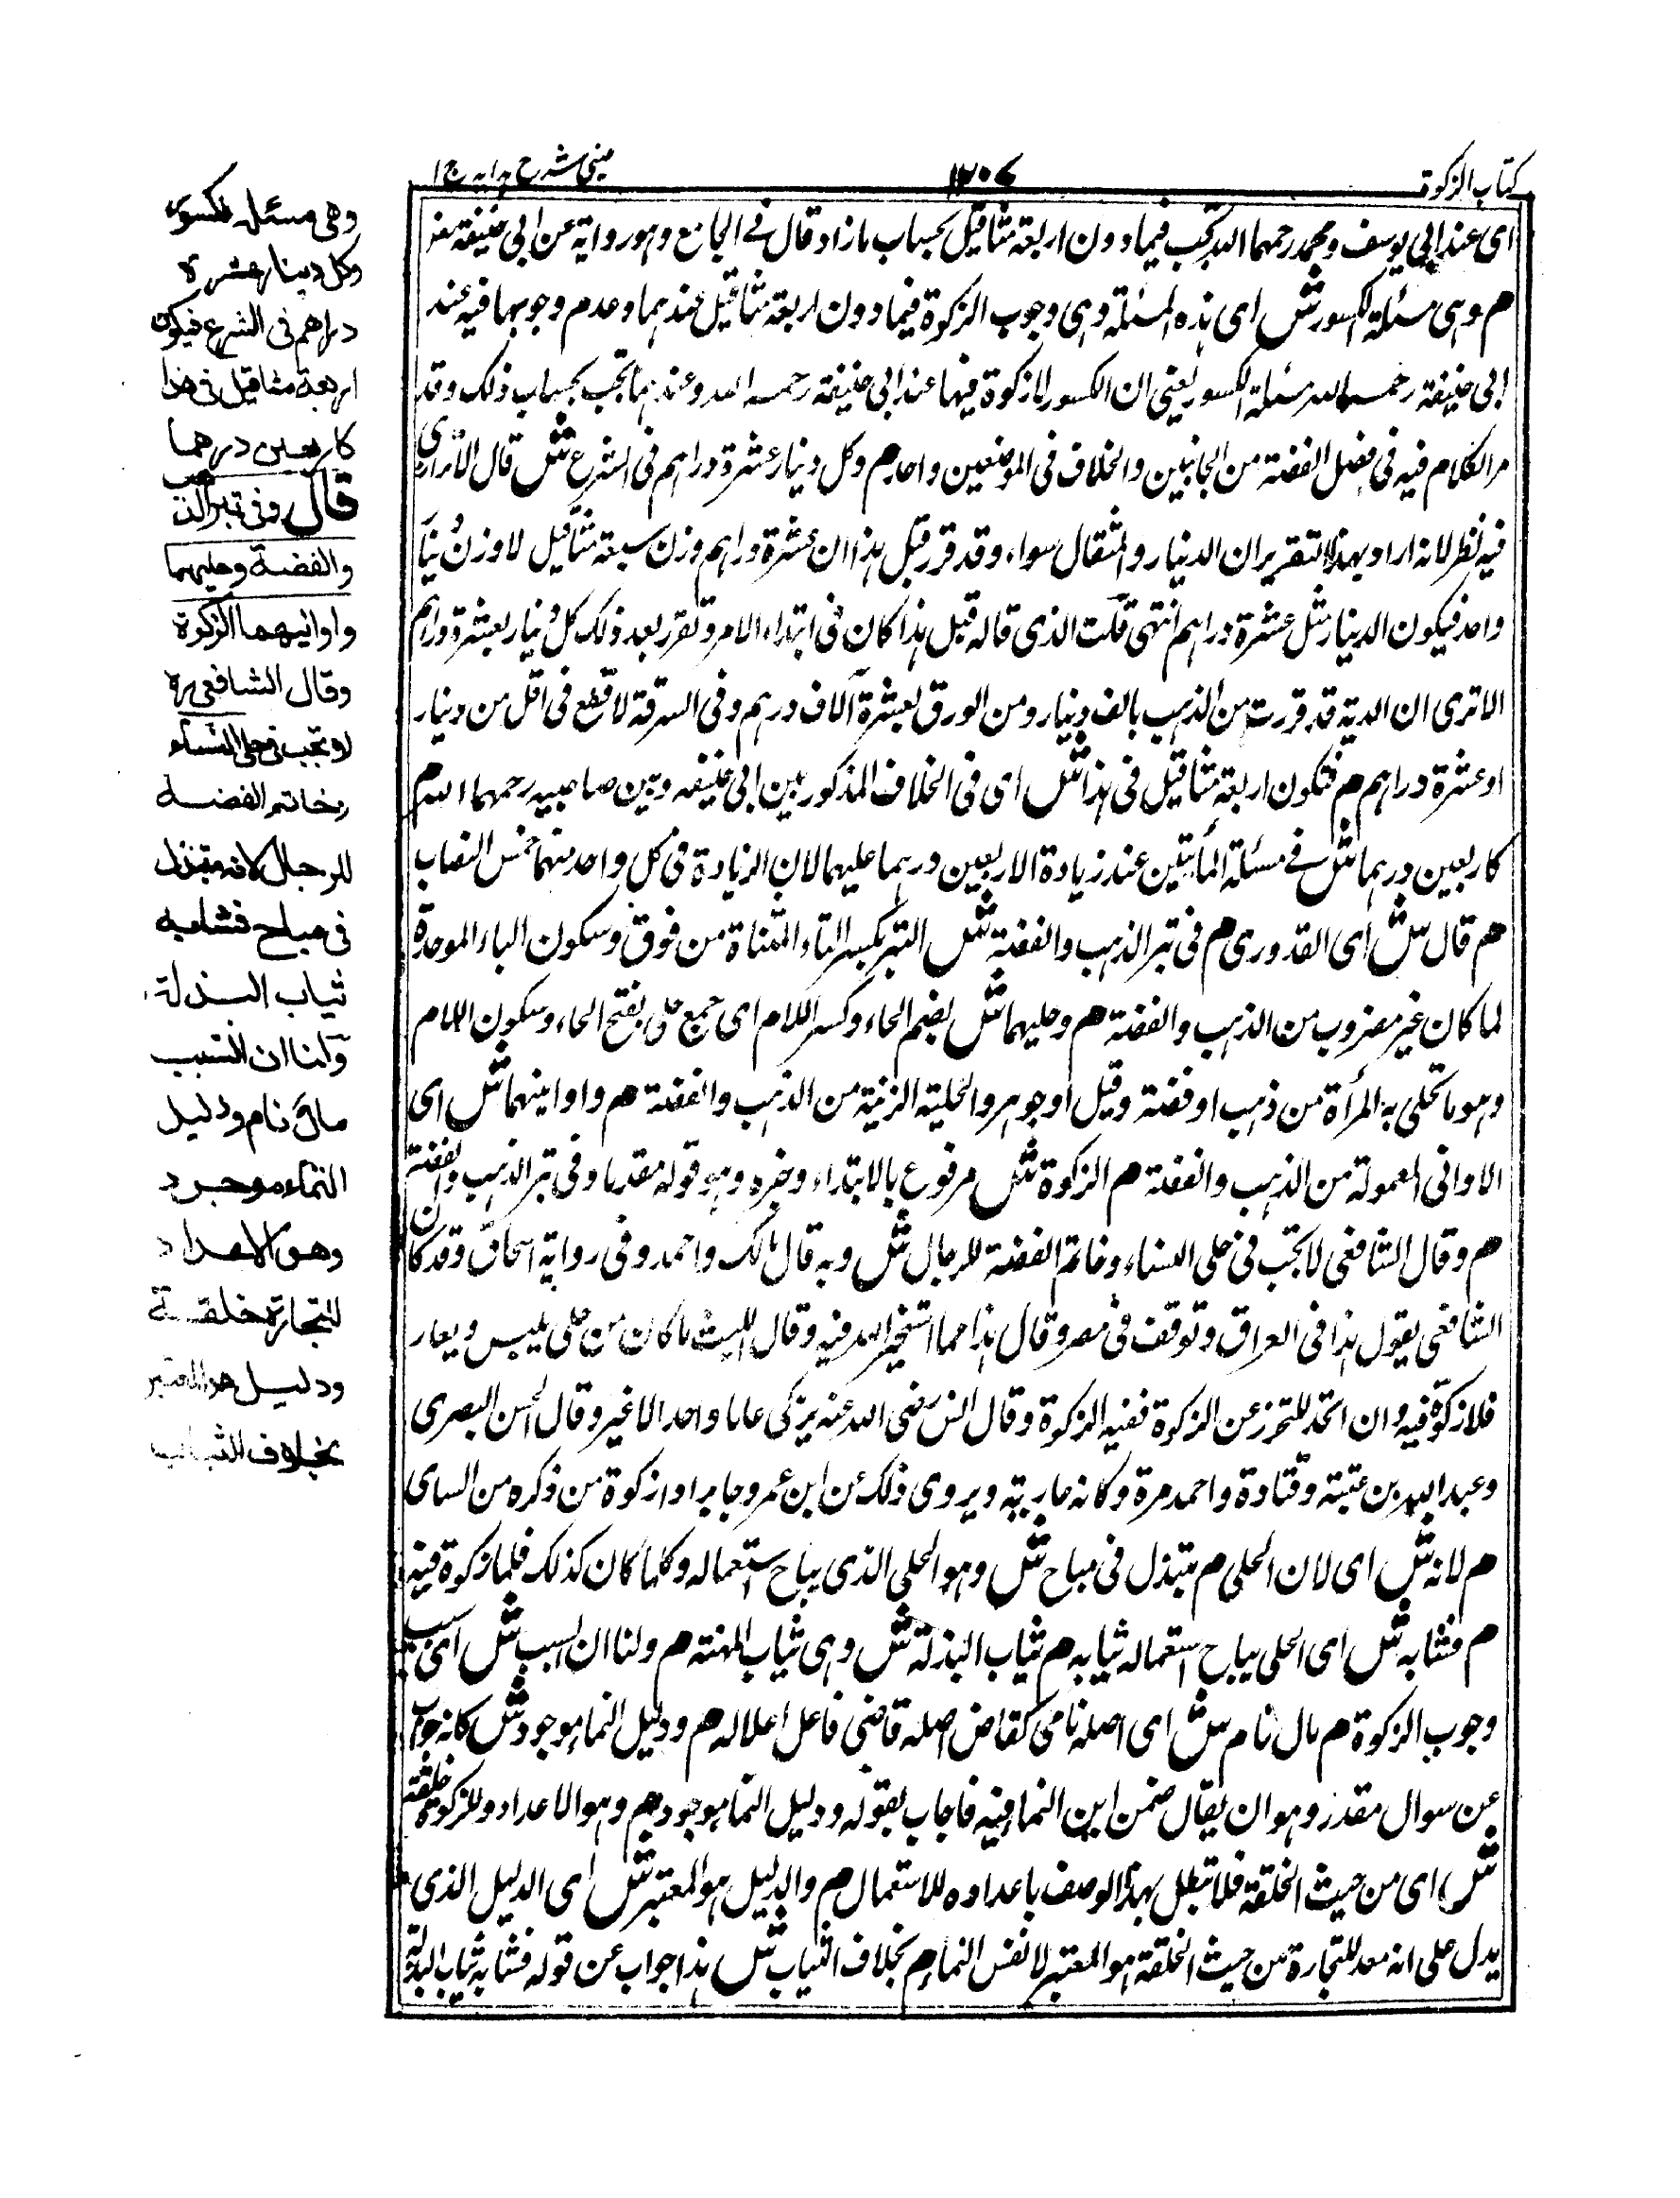 كتاب الزكوة
١٢٠٧
عينى شرح هدايه ج ١
اى عند ابي يوسف ومحمد رحمهما الله تجب فيما دون اربعة مثاقيل بحساب ما زاد قال في الجامع وهو رواية عن ابي حنيفة
م وهى مسئلة الكسور ش اى هذه المسئلة وهى وجوب الزكوة فيما دون اربعة مثاقيل عندهما وعدم وجوبها فيه عند
ابى حنيفة رحمه الله مسئلة الكسور يعنى ان الكسور لا زكوة فيها عند ابى حنيفة رحمه الله وعندهما تجب بحساب ذلك وقد
مر الكلام فيه فى فصل الفضة من الجانبين والخلاف فى الموضعين واحد م وكل دينار عشرة دراهم فى الشرع ش قال الاترازى
فيه نظر لانه اراد بهذا التقرير ان الدينار والمثقال سواء وقد قرر قبل هذا ان عشرة دراهم وزن سبعة مثاقيل لا وزن دينار
واحد فيكون الدينار مثل عشرة دراهم انتهى قلت الذى قاله قبل هذا كان فى ابتداء الامر وتقرر بعد ذلك كل دينار بعشرة دراهم
الا ترى ان الدية قد قررت من الذهب بالف دينار ومن الورق بعشرة آلاف درهم وفى السرقة لا قطع فى اقل من دينار
او عشرة دراهم م فتكون اربعة مثاقيل فى هذا ش اى فى الخلاف المذكور بين ابى حنيفه وبين صاحبيه رحمهما الله م
كاربعين درهما ش في مسئلة المأيتين عند زيادة الاربعين درهما عليهما لان الزيادة فى كل واحد منهما خمس النصاب
م قال ش اى القدورى م فى تبر الذهب والفضة ش التبر بكسر التاء المثناة من فوق وسكون الباء الموحدة
لما كان غير مضروب من الذهب والفضة م وحليهما ش بضم الحاء وكسر اللام اى جمع حلى بفتح الحاء وسكون اللام
وهو ما تحلى به المرأة من ذهب او فضة وقيل او جوهر والحلية الزينة من الذهب والفضة م واوانيهما ش اى
الاوانى المعمولة من الذهب والفضة م الزكوة ش مرفوع بالابتداء وخبره وهو قوله مقدما وفى تبر الذهب والفضة
م وقال الشافعى لا تجب فى حلى النساء وخاتم الفضة للرجال ش وبه قال مالك واحمد وفى رواية اسحاق وقد كان
الشافعى يقول هذا فى العراق وتوقف فى مصر وقال هذا مما استخير الله فيه وقال الليث ما كان من حلى يلبس ويعار
فلا زكوة فيه وان اتخذ للتحرز عن الزكوة ففيه الزكوة وقال انس رضى الله عنه يزكى عاما واحدا لا غير وقال الحسن البصرى
وعبد الله بن عتبة وقتادة واحمد مرة وكانه عاريته ويروى ذلك عن ابن عمر وجابر زكوة من ذكره من
م لانه ش اى لان الحلى م مبتذل فى مباح ش وهو الحلى الذى يباح استعماله وكلما كان كذلك فلا زكوة فيه
م فشابه ش اى الحلى يباح استعماله ثيابه م ثياب البذلة ش وهى ثياب المهنة م ولنا ان السبب ش اى سبب
وجوب الزكوة م مال نام ش اى اصله نامى كقاض اصله قاضى فاعل اعلاله م ودليل النماء موجود ش كانه جواب
عن سوال مقدر وهو ان يقال ضمن اين النماء فيه فاجاب بقوله ودليل النماء موجود م وهو الاعداد وللزكوة خلقة
ش اى من حيث الخلقة فلا تبطل بهذا الوصف باعداده للاستعمال م والدليل هو المعتبر ش اى الدليل الذى
يدل على انه معد للتجارة من حيث الخلقة هو المعتبر لا نفس النماء م بخلاف الثياب ش هذا جواب عن قوله فشابه ثياب البذلة
وهى مسئلة الكسور
وكل دينار عشرة
دراهم فى الشرع فيكون
اربعة مثاقيل فى هذا
كاربعين درهما
قال وفى تبر الذهب
والفضة وحليهما
واوانيهما الزكوة
وقال الشافعى رح
لا تجب فى حلى النساء
وخاتم الفضة
للرجال لانه مبتذل
فى مباح فشابه
ثياب البذلة
ولنا ان السبب
مال نام ودليل
النماء موجود
وهو الاعداد
للتجارة خلقة
ودليل هو المعتبر
بخلاف الثياب